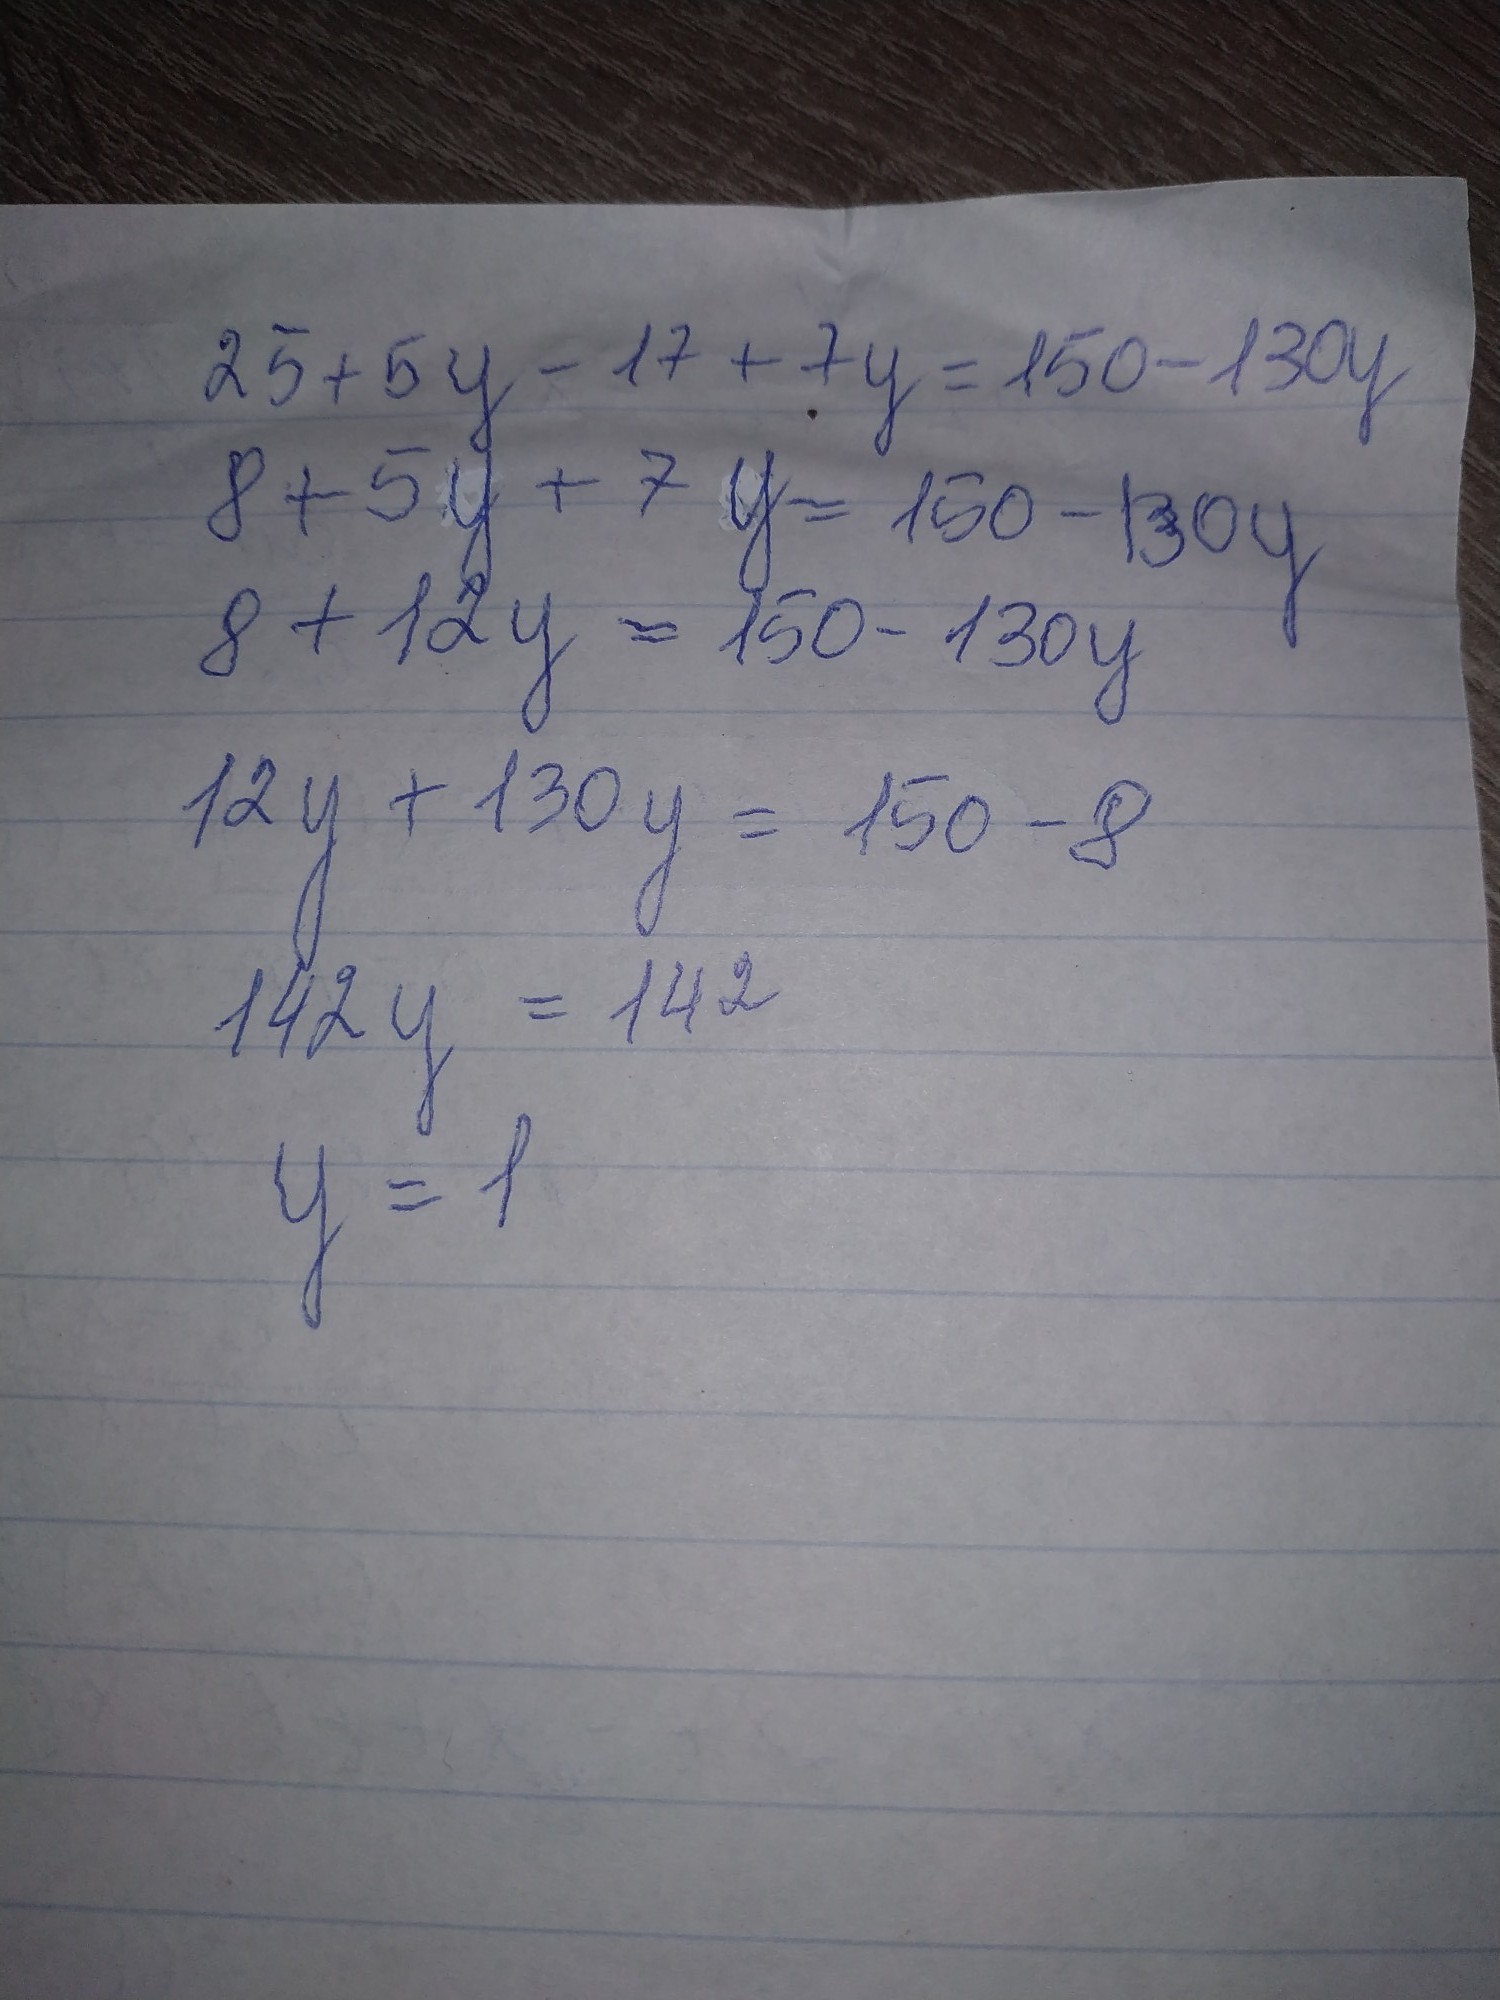 25+5y-17+7y=150-130y
8+5y+7y=150-130y
8+12y=150-130y
12y+130y=150-8
142y=142
y=1